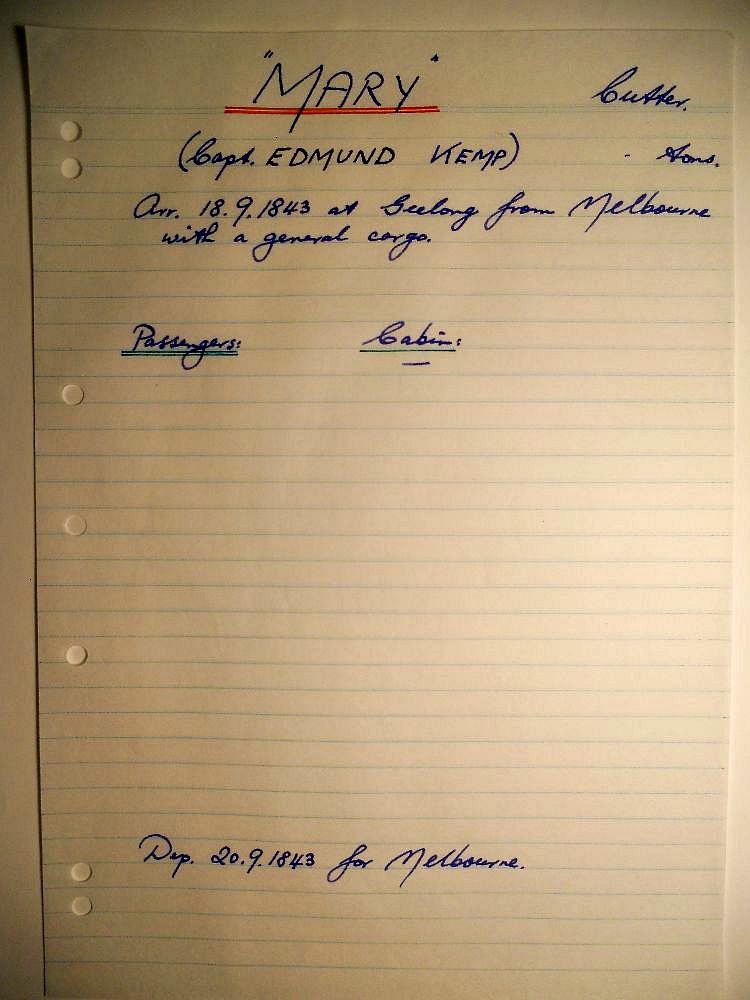 "MARY"
Cutter.
(Capt. EDMUND KEMP)
- tons.
Arr. 18.9.1843 at Geelong from Melbourne
with a general cargo.
Passengers: Cabin:
—
Dep. 20.9.1843 for Melbourne.